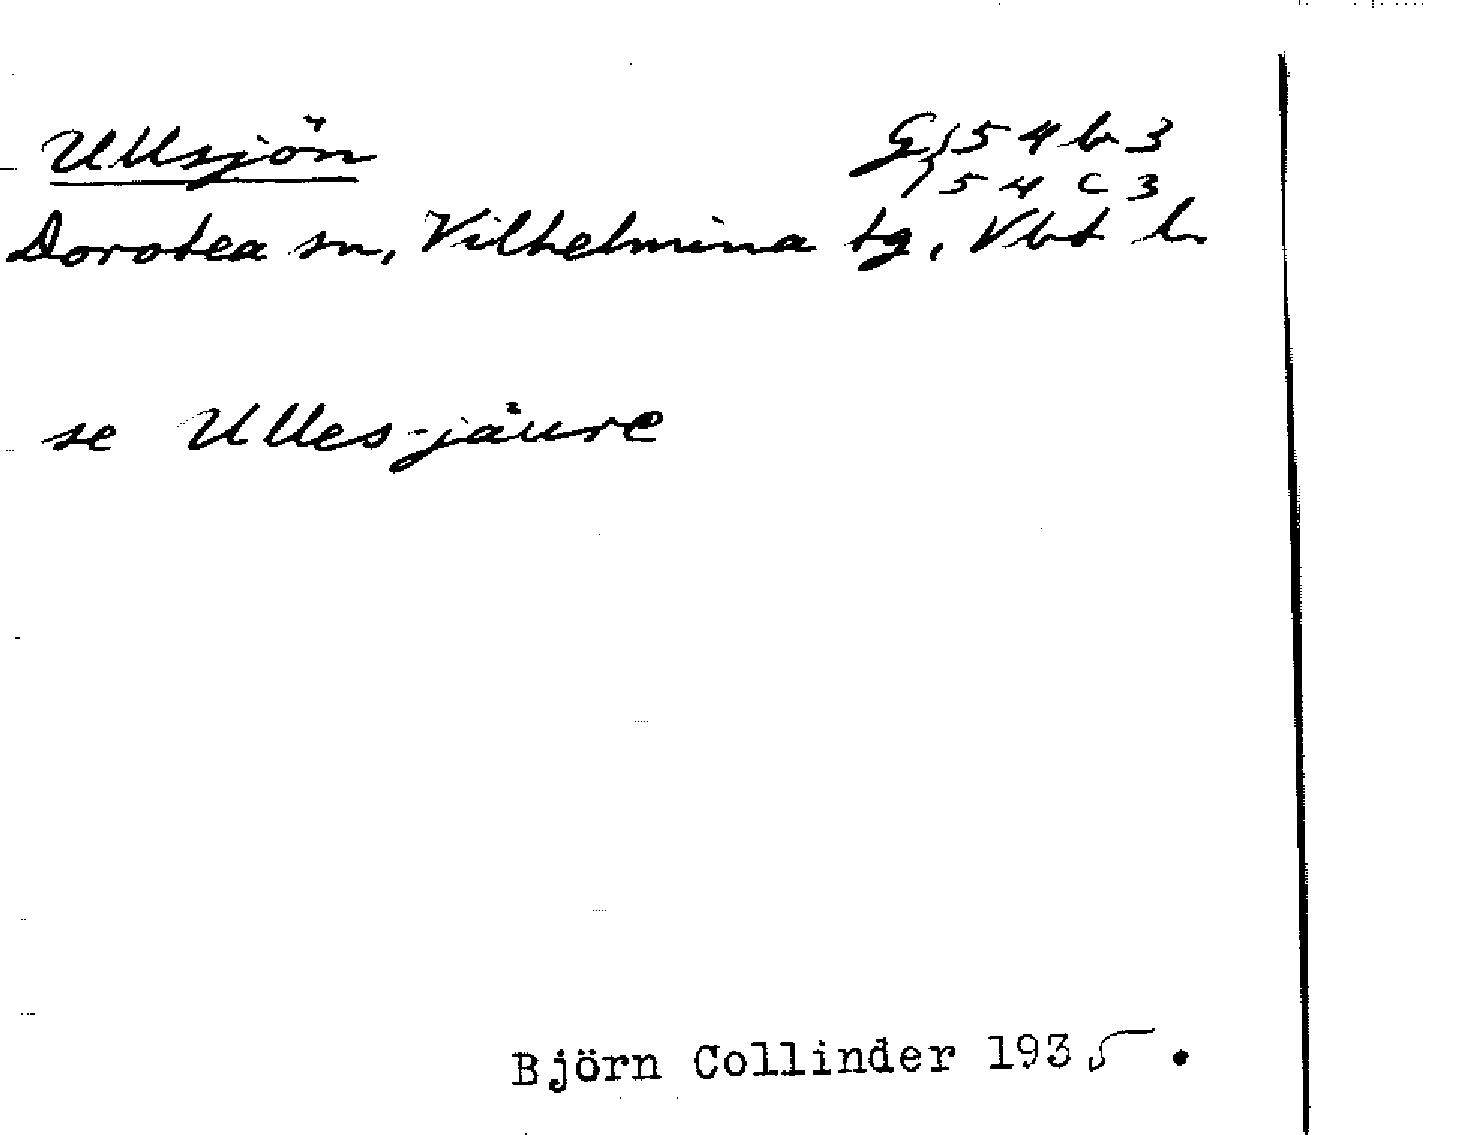 Ullsjön G 54 b 3
54 c 3
Dorotea sn, Vilhelmina tg, Vbt ln
se Ulles-jäure
Björn Collinder 1935.